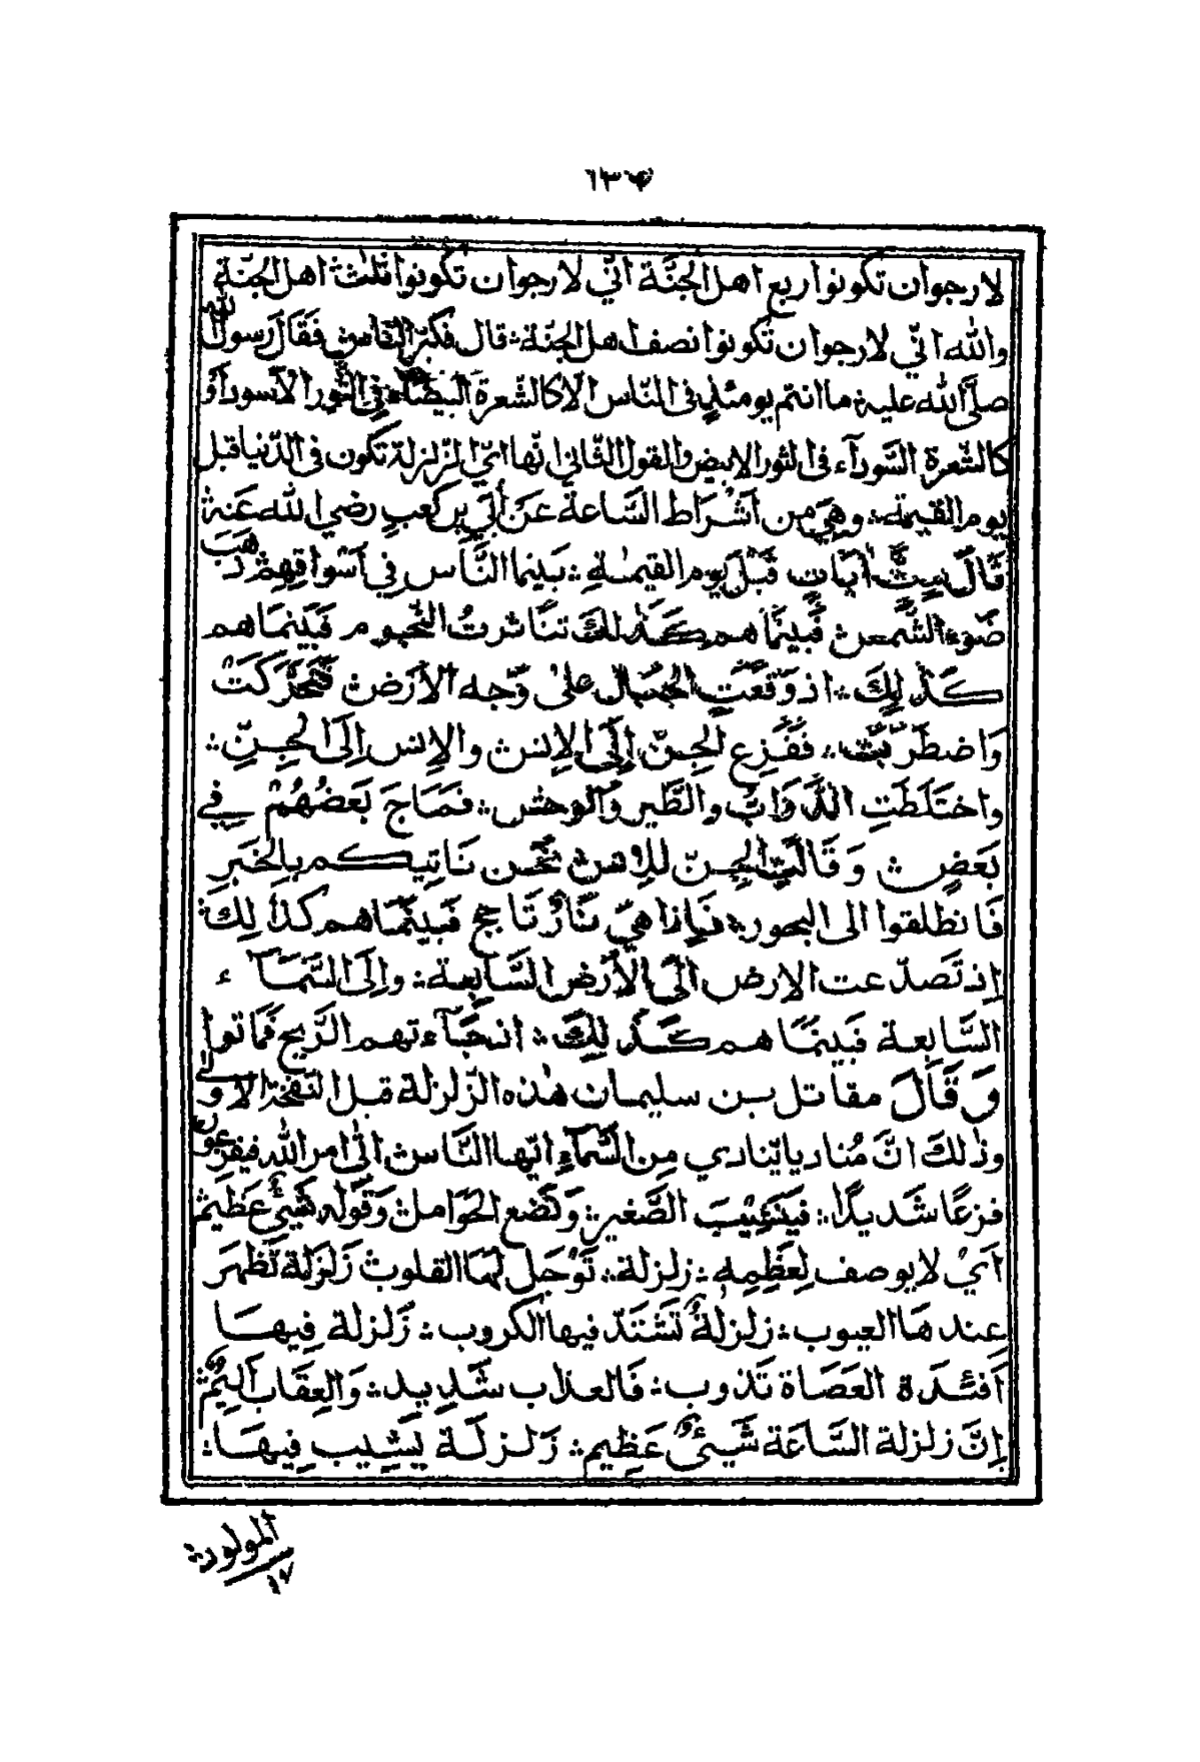 ١٣٤
لارجوان تكونوا ربع اهل الجنَّة انّي لارجوان تكونوا ثلث اهل الجنّة
والله انّي لارجوان تكونوا نصف اهل الجنّة؞ قال فكبّر النّاس فَقَالَ رَسولُ الله
صلَّى الله عليه؞ ما انتم يومئذٍ فى النّاس الّا كالشّعرة البَيضآء فِي الثَّور الأسود أَوْ
كالشّعرة السَّودآء فى الثور الابيض والقول الثّانى انّها ايّ الزّلزلة تكون فى الدّنيا قبل
يوم القيمة؞ وهِيَ مِن اشْرَاط السَّاعة عَن أُبَيِّ بن كعبٍ رضي الله عَنهُ
قَالَ سِتُّ آيَاتٍ قَبْلَ يوم القيمٰةِ؞ بَينما النَّاس في أسْواقِهِمْ ذهَبَ
ضَوءُ الشَّمس فَبينَمَا هم كَذٰلك تنَاثرتُ النُّجوم فَبَينَمَا هم
كَذٰلِكَ؞ اذ وَقَعَتِ الجبَال علىٰ وَجه الأرَض فَتحَرَّكَتْ
وَاضطَرَبَتْ؞ فَفَزِعَ الجِنّ إلَى الإنس والإنس إلَى الجِنِّ؞
واختَلَطَتِ الدَّوَابُّ والطَّير وَالوحش؞ فمَاجَ بَعَضُهُمْ فِي
بَعَضٍ وَقَالَتِ الجِنّ للإنس نَحْن نَاتِيكم بالخَبَرِ
فَانطلقوا الى البحور؞ فَإذا هِيَ نَارٌ تَاجج فَبينَمَا هم كذٰلِكَ
إذ تَصدّعت الارض الَى الأرْضِ السَّابِعة؞ وإلَى السَّمَآء
السَّابِعة فَبَينَمَا هم كَذٰلِكَ؞ اذ جَآءتهم الرِّيح فَمَاتوا
وَقَالَ مقاتل بن سليمان هٰذه الزّلزلة قبل النّفخة الاولى
وذٰلكَ انَّ مُناديا يّنادي مِن السَّمَآءِ ايّها النَّاس اتٰى امر الله فيفزعون
فزعًا شَديدًا؞ فَيَشِيْبَ الصَّغير؞ وَتَضَع الحَوَامل؞ وَقَولُه شَيْئٌ عَظِيمٌ
اَيْ لا يوصف لِعَظِمِهِ؞ زلزلة؞ تَوْجَل لهَا القلوبُ زَلزلة تَظهَر
عِندهَا العيوب؞ زلزلةٌ تَشتَدّ فيها الكروب؞ زَلزلة فِيهَا
اَفئدَة العَصَاة تَذوب؞ فَالعذاب شَدِيد؞ وَالعِقَاب اَلِيْمٌ؞
إنَّ زلزلة السَّاعَة شَيئٌ عَظِيم؞ زَلزلَة يَشِيب فِيهَا؞
المولود؞
١٧